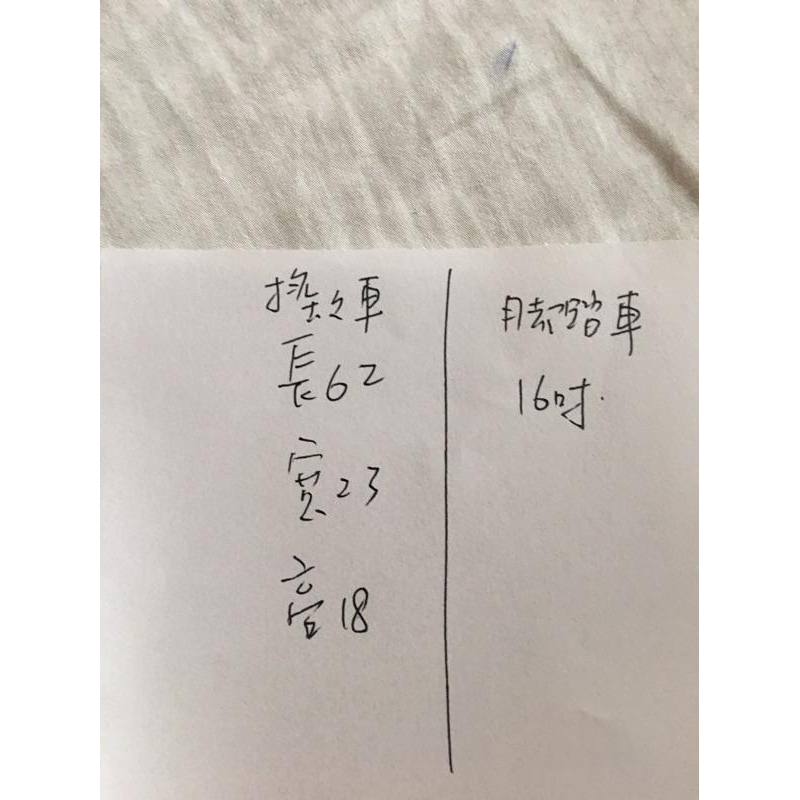 車
長62
寬23
高18
腳踏車
16吋.